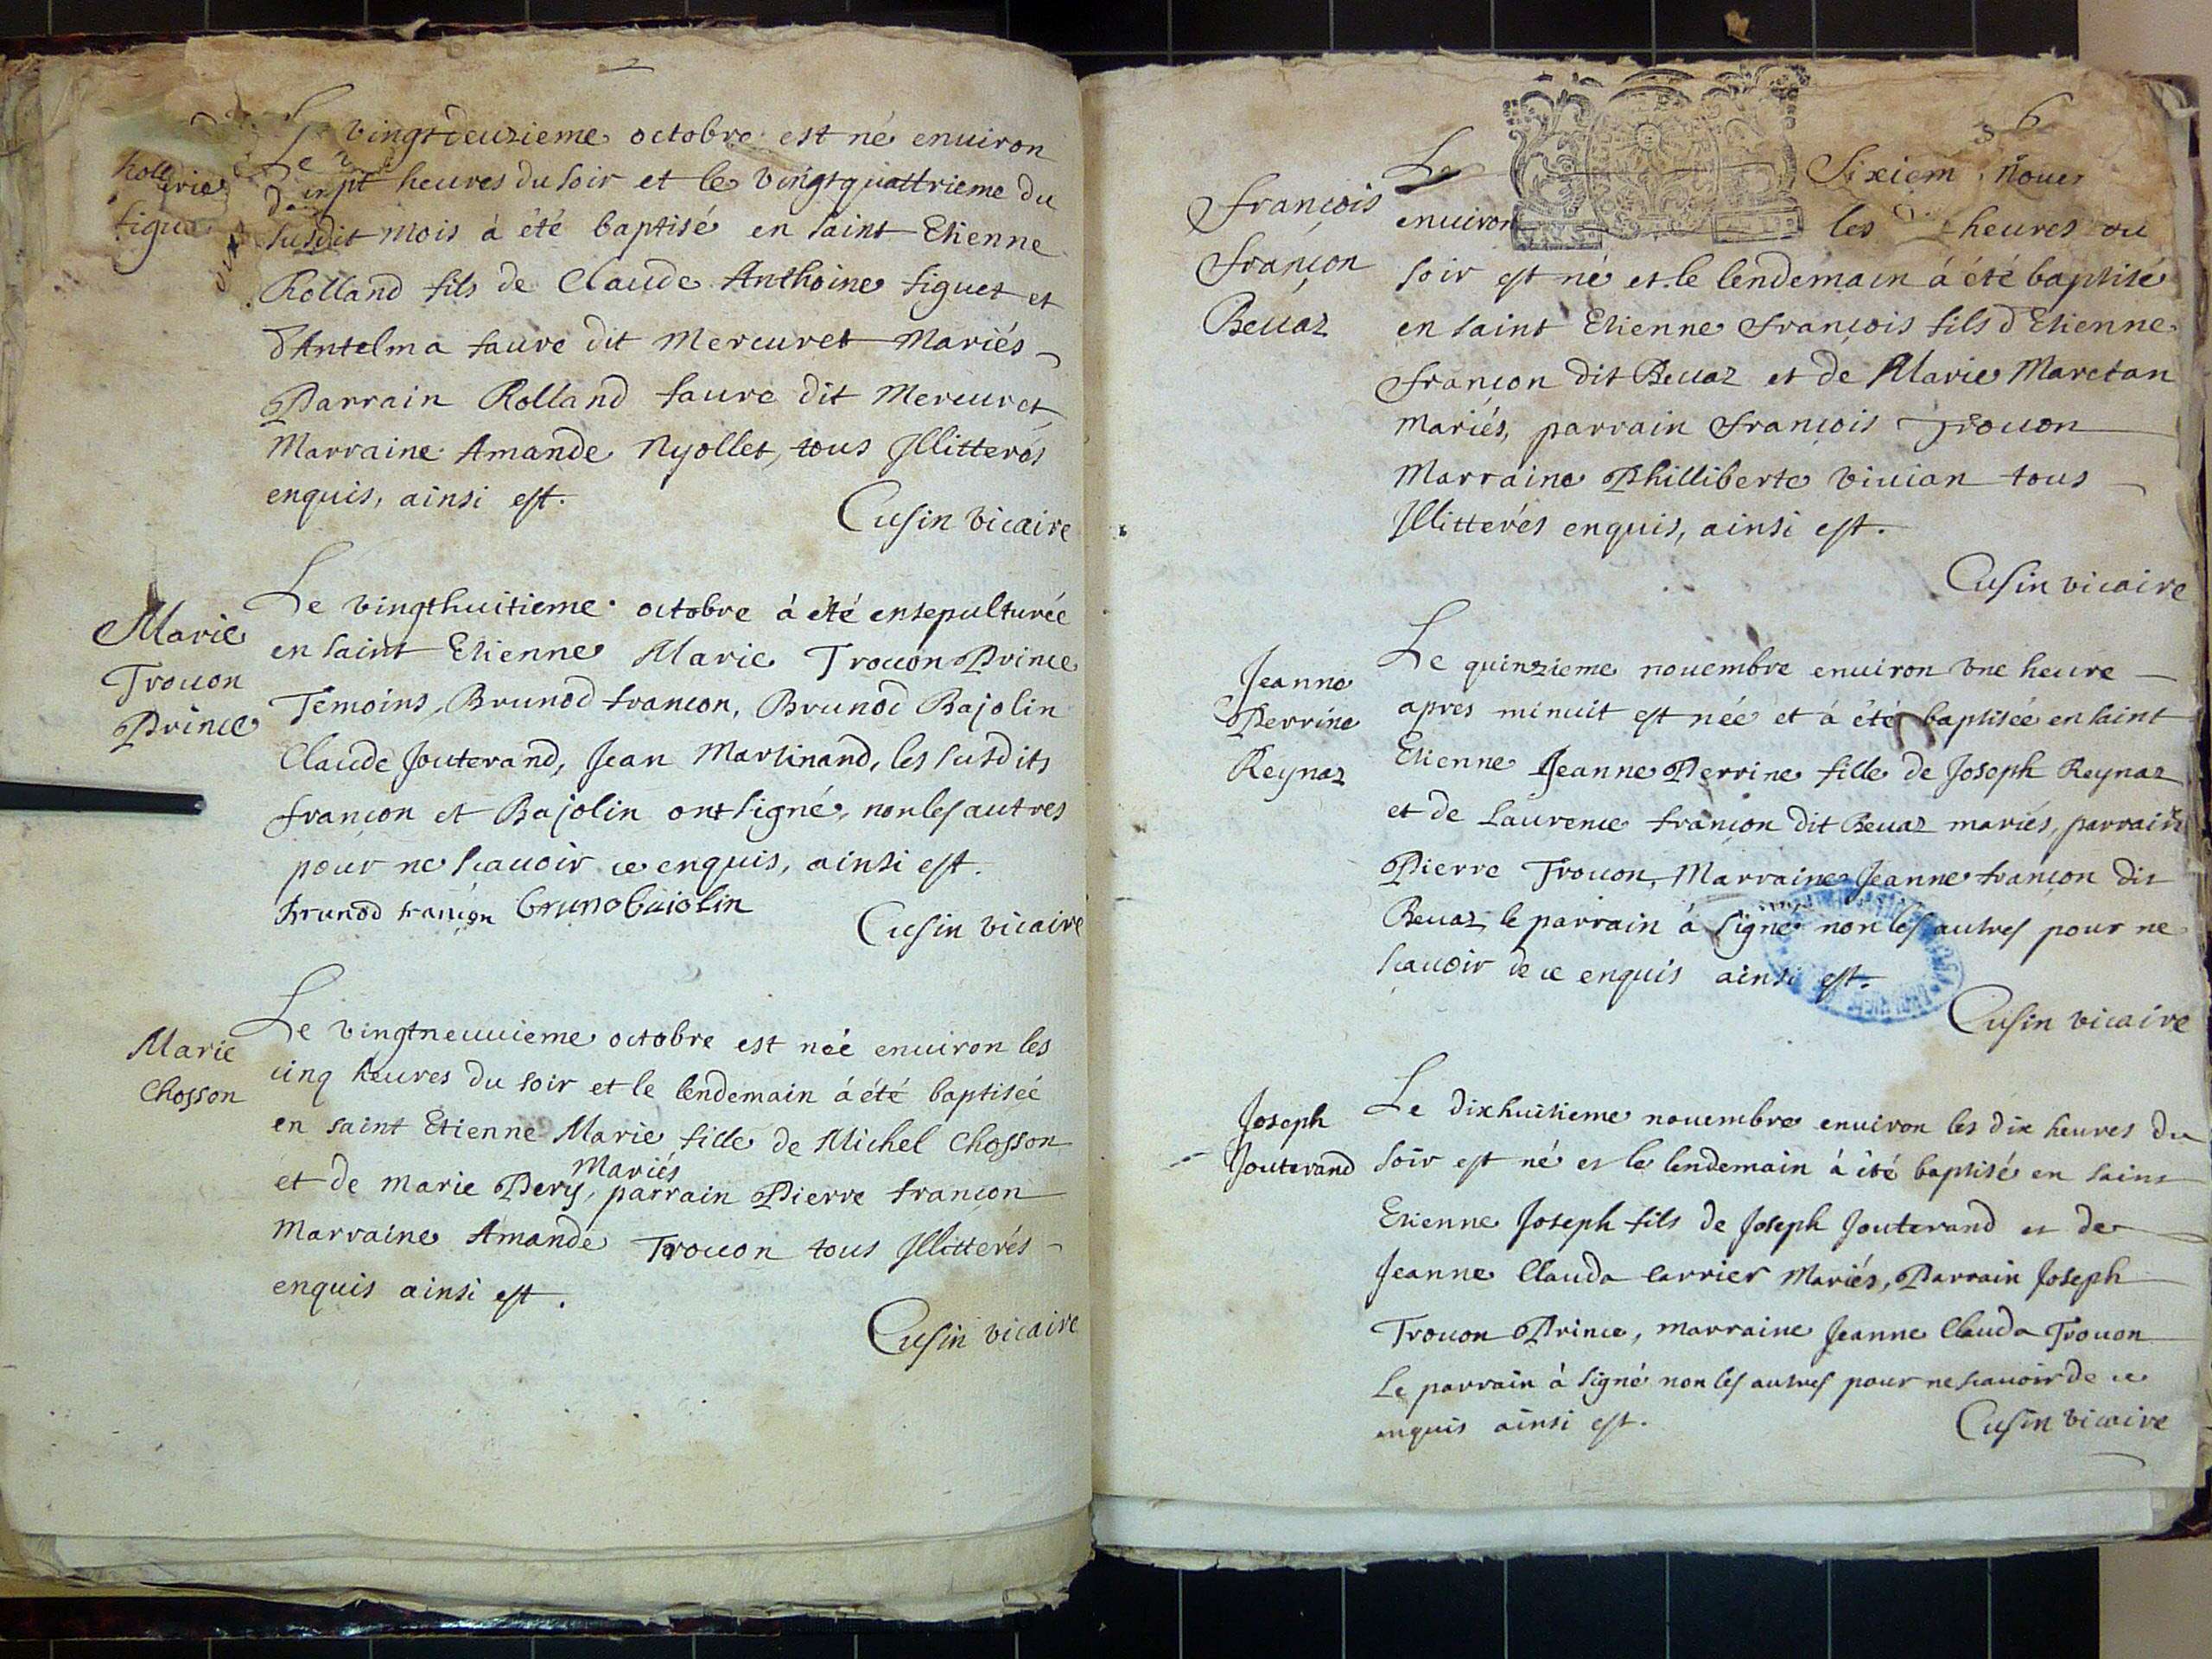 Le vingtdeuzieme octobre est né enuiron
heures du soir et le vingtquattrieme du
susdit mois à été baptisé en saint Etienne
Rolland fils de Claude Anthoine figuet et
d'Antelma faure dit Mercuret Mariés
Parrain Rolland faure dit Mercuret
Marraine Amande Nyollet, tous Illitterés
enquis, ainsi est.
Cusin vicaire
Marie
Trouon
Prince
Le vingthuitieme octobre à été ensepulturée
en saint Etienne Marie Trouon Prince
Temoins, Brunod francon, Brunod Bajolin
Claude Jouterand, Jean Martinand, les susdits
françon et Bajolin ont signé, non les autres
pour ne scauoir ce enquis, ainsi est.
brunod françon bruno baiolin
Cusin vicaire
Marie
Chosson
Le vingtneuuieme octobre est née enuiron les
cinq heures du soir et le lendemain à été baptiseé
en saint Etienne Marie fille de Michel Chosson
Mariés
et de marie Pery, parrain Pierre francon
Marraine Amande Trouon tous Illitterés
enquis ainsi est.
Cusin vicaire
6
François
françon
Beuaz
Le Sixiem nouem
enuiron les heures du
soir est né et le lendemain à été baptisé
en saint Etienne françois fils d'Etienne
françon dit Beuaz et de Marie Marctan
mariés, parrain françois Trouon
Marraine Philliberte viuian tous
Illitterés enquis, ainsi est.
Cusin vicaire
Jeanne
Perrine
Reynaz
Le quinzieme nouembre enuiron vne heure
apres minuit est née et à été baptisée en saint
Etienne Jeanne Perrine fille de Joseph Reynaz
et de Laurence françon dit Beuaz mariés, parrain
Pierre Trouon, Marraine Jeanne françon dit
Beuaz, le parrain à signé non les autres pour ne
scauoir de ce enquis ainsi est.
Cusin vicaire
Joseph
Jouterand
Le dixhuitieme nouembre enuiron les dix heures du
soir est né et le lendemain à été baptisé en saint
Etienne Joseph fils de Joseph Jouterand et de
Jeanne Clauda Carrier Mariés, Parrain Joseph
Trouon Prince, marraine Jeanne Clauda Trouon
Le parrain à signé non les autres pour ne scauoir de ce
enquis ainsi est.
Cusin vicaire